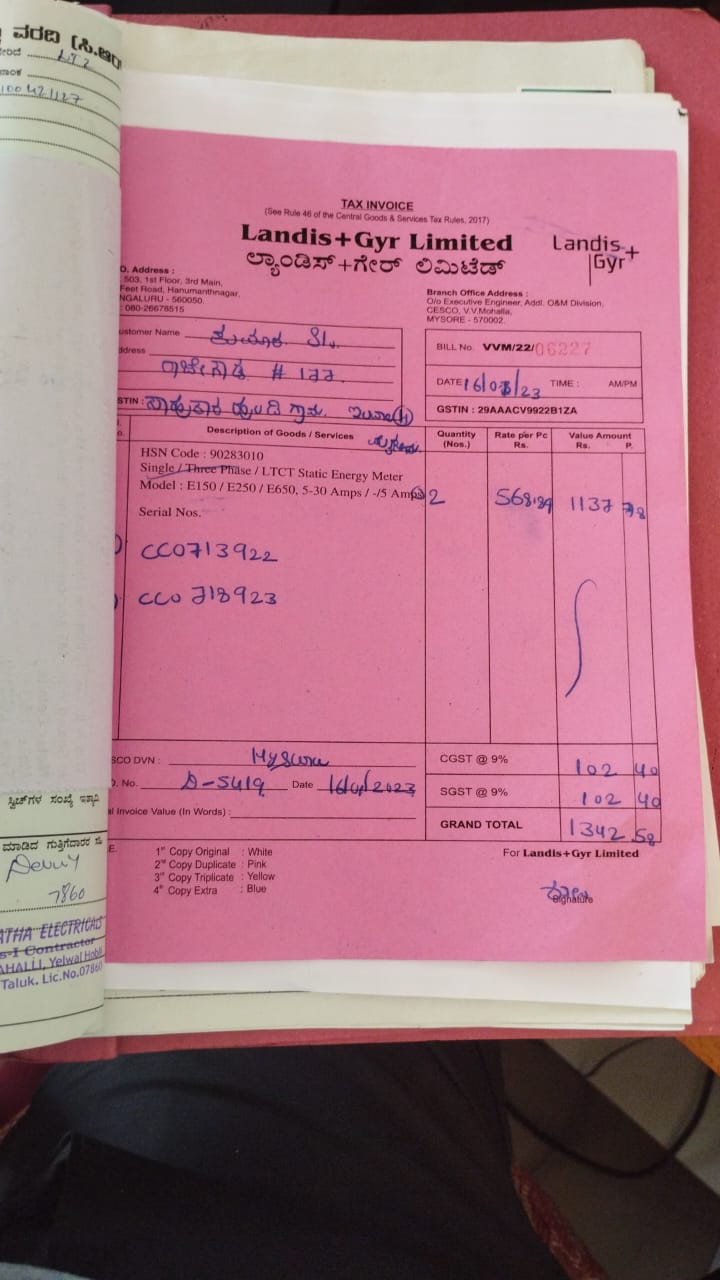 ವರದಿ (ಸಿ.ಆರ
LT2
100421127
TAX INVOICE
(See Rule 46 of the Central Goods & Services Tax Rules, 2017)
Landis+Gyr Limited
ಲ್ಯಾಂಡಿಸ್+ಗೇರ್ ಲಿಮಿಟೆಡ್
Landis+
Gyr
O. Address :
503, 1st Floor, 3rd Main,
Feet Road, Hanumanthnagar,
NGALURU - 560050.
: 080-26678515
Branch Office Address :
O/o Executive Engineer, Addl. O&M Division,
CESCO, V.V.Mohalla,
MYSORE - 570002.
ustomer Name ಕುಮಾರ S/o
ddress
# 177
STIN :
BILL No. VVM/22/06227
DATE 16/0 /23 TIME : AM/PM
GSTIN : 29AAACV9922B1ZA
Description of Goods / Services
Quantity (Nos.)
Rate per Pc Rs.
Value Amount Rs. P.
HSN Code : 90283010
Single / Three Phase / LTCT Static Energy Meter
Model : E150 / E250 / E650, 5-30 Amps / -/5 Amps
2 568.89 1137 78
Serial Nos.
CC0713922
CC0718923
SCO DVN : Mysuru
CGST @ 9% 102 40
. No. D-5419 Date 16/0 /2023
SGST @ 9% 102 40
l Invoice Value (In Words) :
GRAND TOTAL 1342.58
E.
1st Copy Original : White
2nd Copy Duplicate : Pink
3rd Copy Triplicate : Yellow
4th Copy Extra : Blue
For Landis+Gyr Limited
Signature
ಸ್ವಿಚ್‌ಗಳ ಸಂಖ್ಯೆ ಇತ್ಯಾದಿ
ಮಾಡಿದ ಗುತ್ತಿಗೆದಾರರ ಸ
7860
ATHA ELECTRICALS
s-I Contractor
AHALLI, Yelwal Hobli
Taluk. Lic.No.07860